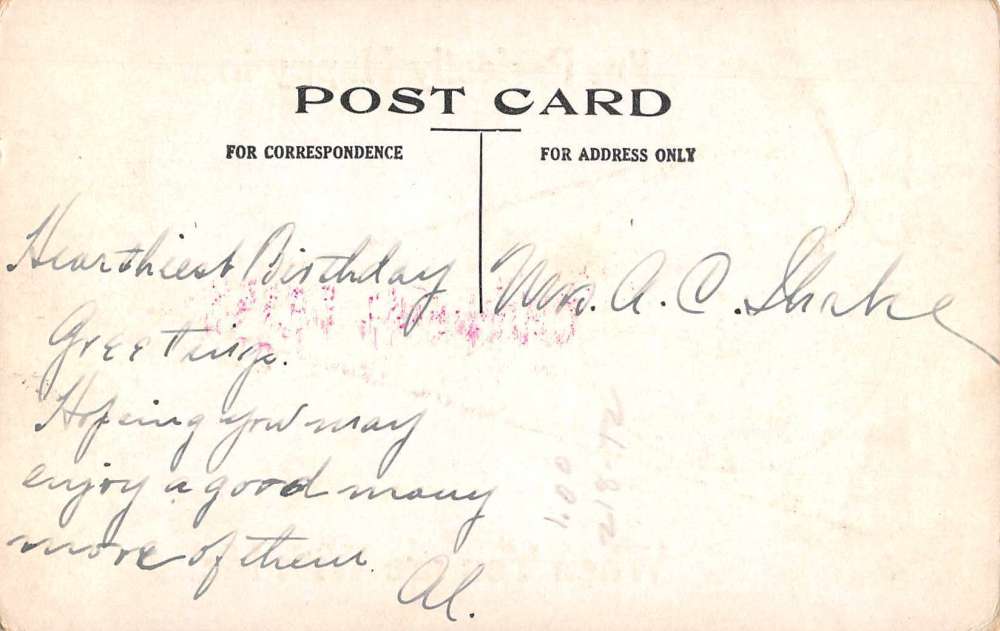 POST CARD
FOR CORRESPONDENCE
FOR ADDRESS ONLY
Hearthiest Birthday
Greetings.
Hopeing you may
enjoy a good many
more of them
Al.
Mrs. A. C. Shake
1.00
218-12